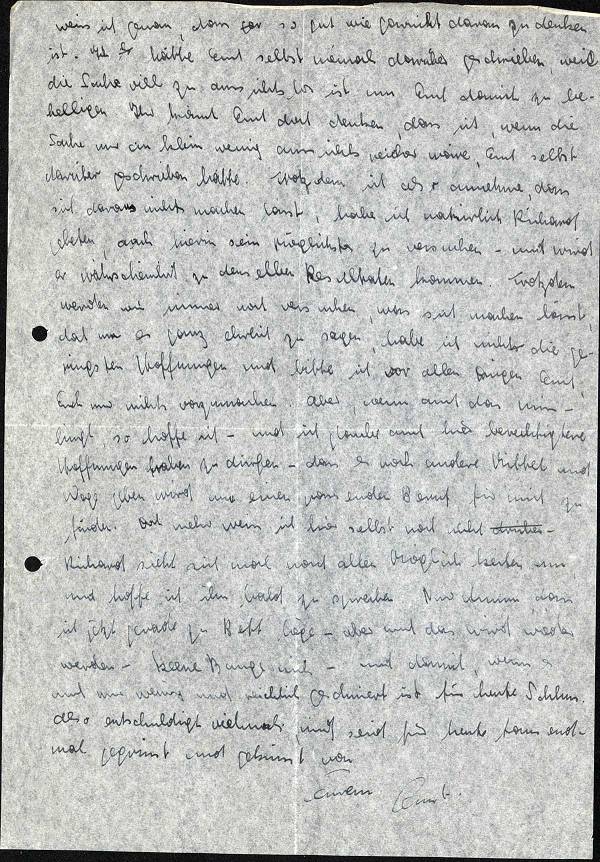 weiss ich genau, dass gar so gut wie garnicht daran zu denken
ist. Ich hätte Euch selbst niemals darüber geschrieben, weil
die Sache viel zu aussichtslos ist um Euch damit zu be-
helligen. Ihr könnt Euch doch denken, dass ich, wenn die
Sache nur ein klein wenig aussichtsreicher wäre, Euch selbst
darüber geschrieben hätte. Trotzdem ich also annehme, dass
sich daraus nichts machen lässt, habe ich natürlich Richard
gebeten, auch hierin sein möglichstes zu versuchen - und wird
er wahrscheinlich zu denselben Resultaten kommen. Trotzdem
werden wir immer noch versuchen, was sich machen lässt,
doch um es ganz ehrlich zu sagen, habe ich nicht die ge-
ringsten Hoffnungen und bitte ich vor allen Dingen Euch,
Euch nur nichts vorzumachen. Aber, wenn auch das miss-
lingt, so hoffe ich - und ich glaube auch hier berechtigtere
Hoffnungen haben zu dürfen - dass es noch andere Mittel und
Wege geben wird um einen passenden Beruf für mich zu
finden. Doch mehr weiss ich hier selbst noch nicht
Richard sieht sich mal nach allen Möglichkeiten um
und hoffe ich ihn bald zu sprechen. Nur dumm, dass
ich jetzt gerade zu Bett liege - aber auch das wird wieder
werden - keine Bange - und damit, wenn es
auch nur wenig und schlecht geschmiert ist für heute Schluss.
Also entschuldigt vielmals und seid für heute tausend-
mal gegrüsst und geküsst von
Eurem